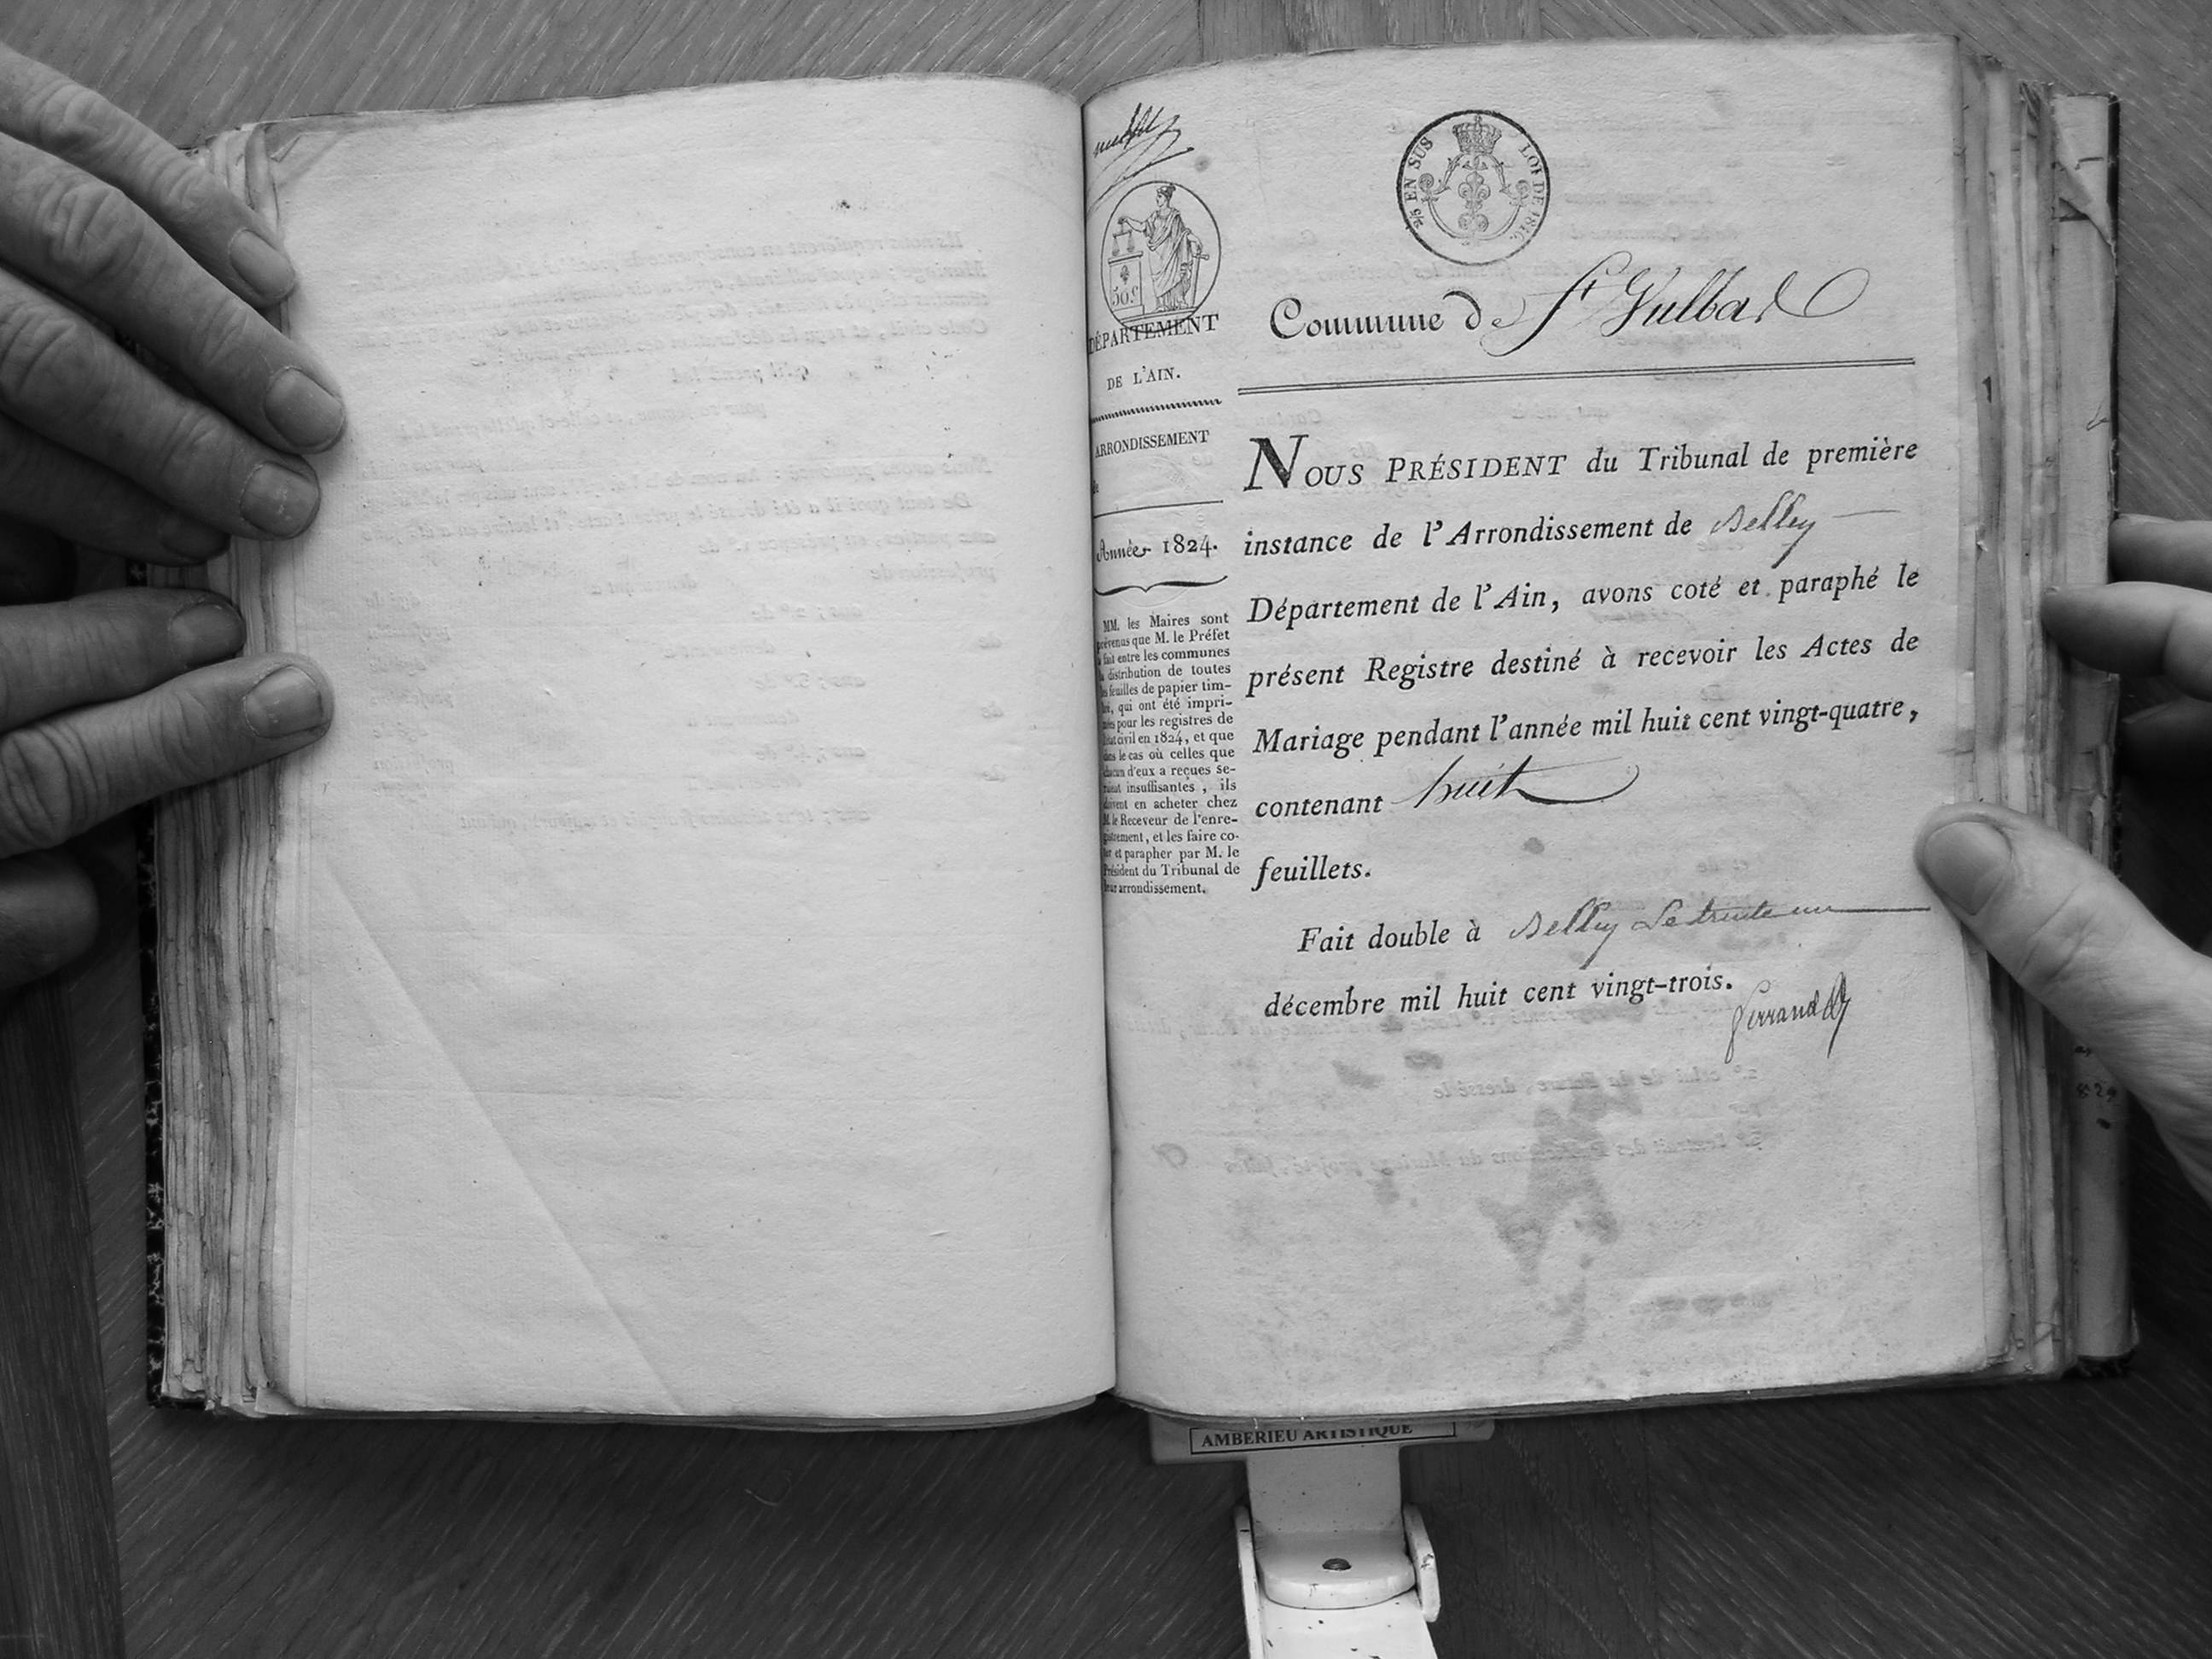 2/5 EN SUS
LOI DE 1816.
50c
DÉPARTEMENT
DE L'AIN.
ARRONDISSEMENT
de
Année 1824.
MM. les Maires sont
prévenus que M. le Préfet
a fait entre les communes
la distribution de toutes
les feuilles de papier tim-
bré, qui ont été impri-
mées pour les registres de
l'état civil en 1824, et que
dans le cas où celles que
chacun d'eux a reçues se-
raient insuffisantes, ils
doivent en acheter chez
M. le Receveur de l'enre-
gistrement, et les faire co-
ter et parapher par M. le
Président du Tribunal de
leur arrondissement.
Commune de St Vulbas
NOUS PRÉSIDENT du Tribunal de première
instance de l'Arrondissement de Belley
Département de l'Ain, avons coté et paraphé le
présent Registre destiné à recevoir les Actes de
Mariage pendant l'année mil huit cent vingt-quatre,
contenant huit
feuillets.
Fait double à Belley Le trente un
décembre mil huit cent vingt-trois.
AMBERIEU ARTISTIQUE